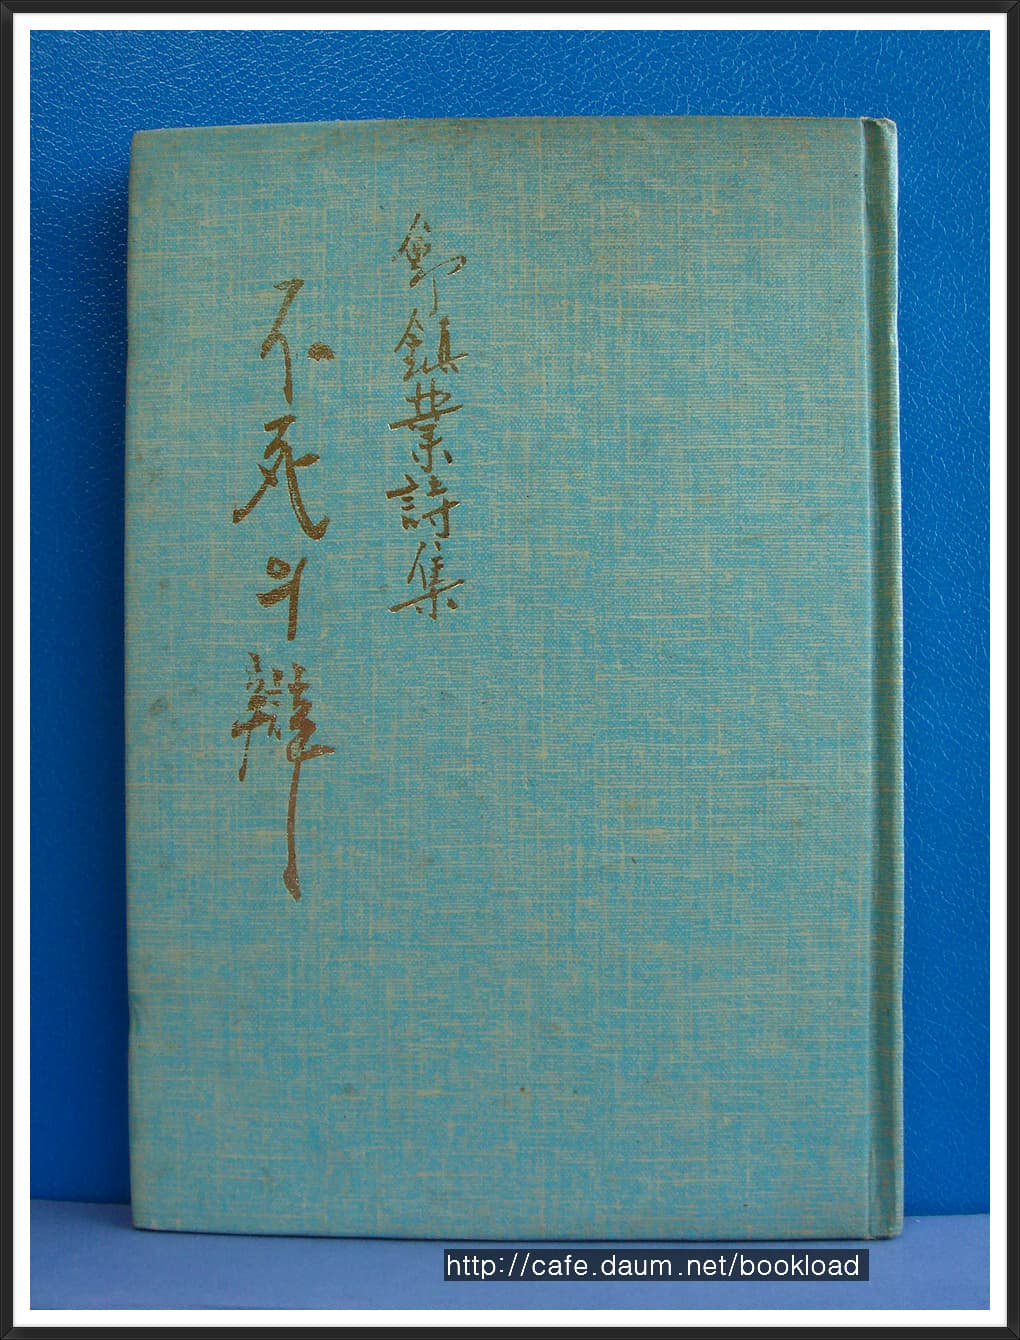 鄭鎭業詩集
不死의 辯
http://cafe.daum.net/bookload